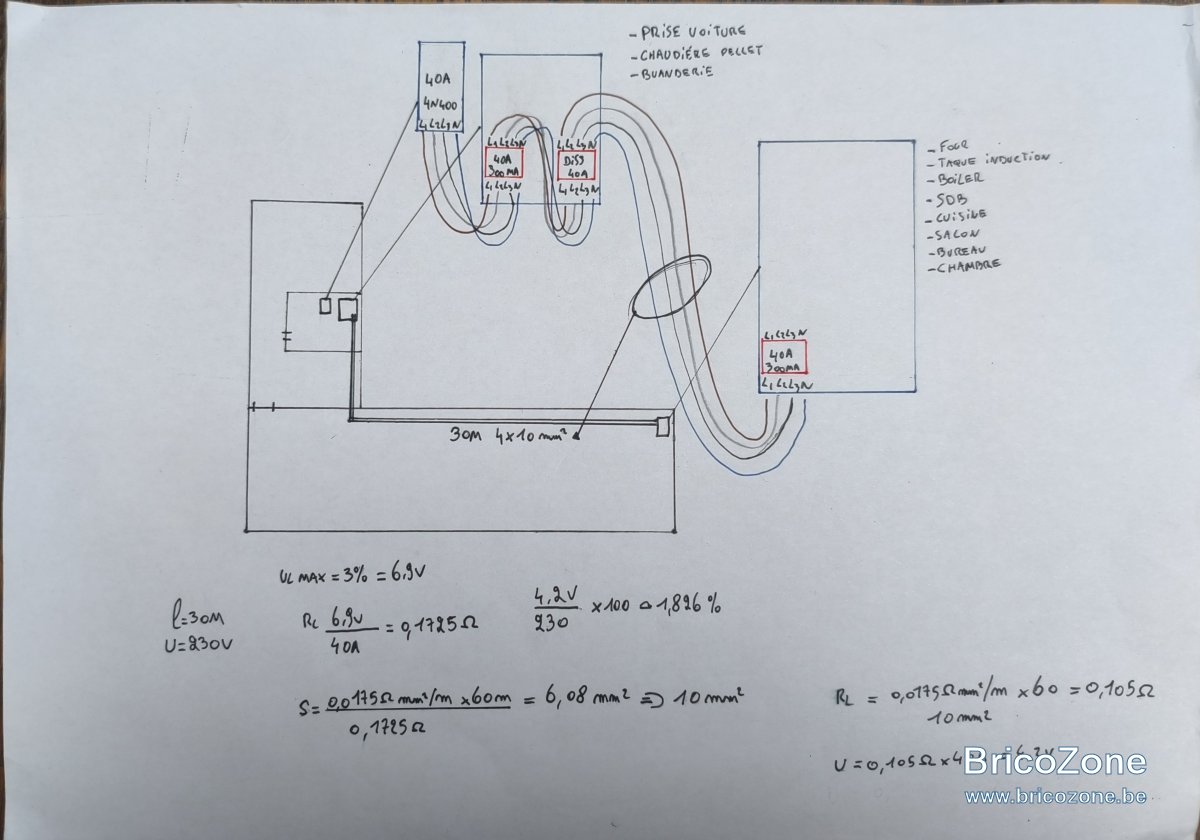 - PRISE VOITURE
- CHAUDIÈRE PELLET
- BUANDERIE
40A
4N400
L1 L2 L3 N
L1 L2 L3 N
40A
300MA
L1 L2 L3 N
L1 L2 L3 N
DISJ
40A
L1 L2 L3 N
- FOUR
- TAQUE INDUCTION
- BOILER
- SDB
- CUISINE
- SALON
- BUREAU
- CHAMBRE
L1 L2 L3 N
40A
300MA
L1 L2 L3 N
30M 4x10mm²
UL MAX = 3% = 6,9V
l=30M
U=230V
RL 6,9V / 40A = 0,1725Ω
4,2V / 230 x100 = 1,826%
S= 0,0175Ω mm²/m x60m / 0,1725Ω = 6,08 mm² => 10mm²
RL = 0,0175Ωmm²/m x60 / 10mm² = 0,105Ω
U=0,105Ω x4
BricoZone
www.bricozone.be